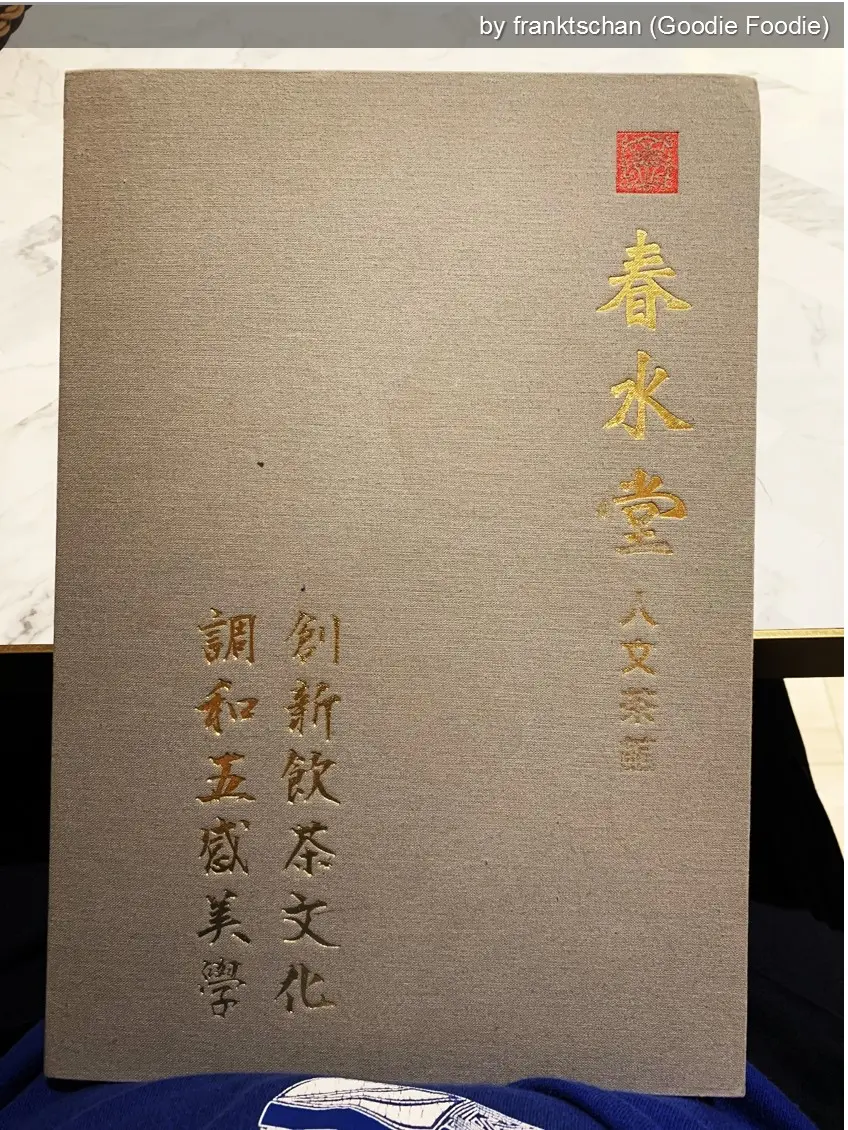 by franktschan (Goodie Foodie)
春水堂
人文茶館
創新飲茶文化
調和五感美學